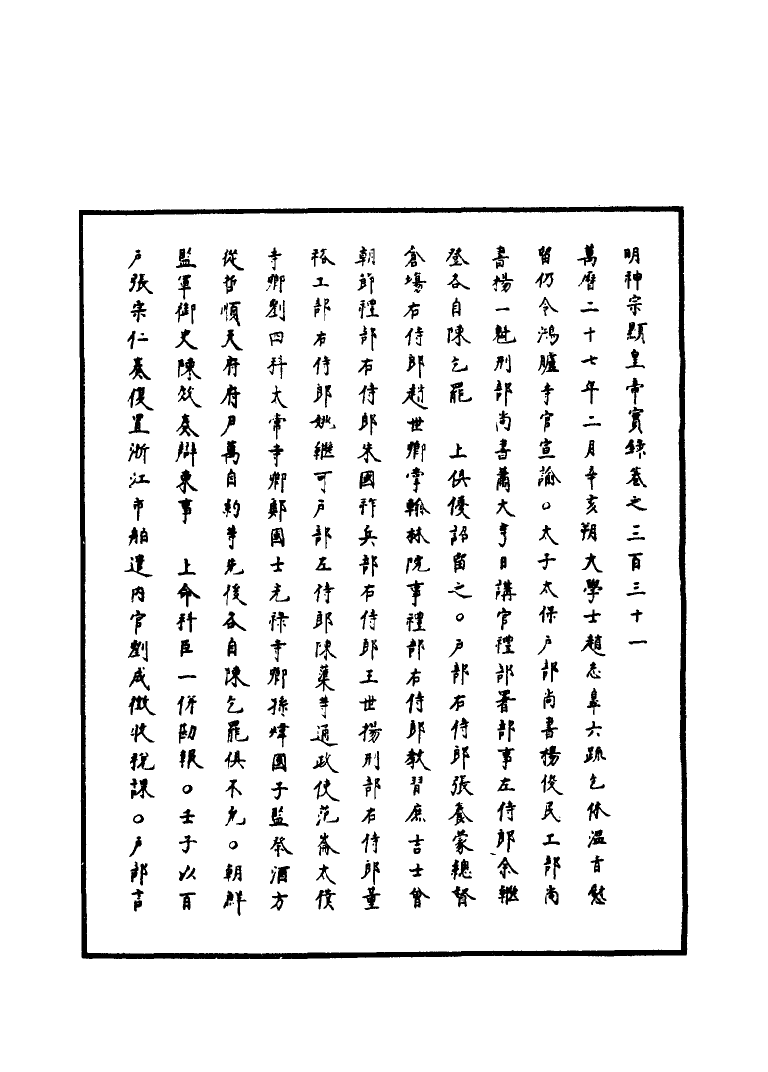 明神宗顯皇帝實錄卷之三百三十一
萬曆二十七年二月辛亥朔大學士趙志皋六疏乞休溫旨慰
留仍令鴻臚寺官宣諭○太子太保戶部尚書楊俊民工部尚
書楊一魁刑部尚書蕭大亨日講官禮部署部事左侍郎余繼
登各自陳乞罷　上俱優詔留之○戶部右侍郎張養蒙總督
倉場右侍郎趙世卿掌翰林院事禮部右侍郎教習庶吉士曾
朝節禮部右侍郎朱國祚兵部右侍郎王世揚刑部右侍郎董
裕工部右侍郎姚繼可戶部左侍郎陳蕖等通政使范崙太僕
寺卿劉四科太常寺卿鄭國士光祿寺卿孫煒國子監祭酒方
從哲順天府府尹萬自約等先後各自陳乞罷俱不允○朝鮮
監軍御史陳效奏辯東事　上命科臣一併勘報○壬子以百
戶張宗仁奏復置浙江市舶遣內官劉成徵收稅課○戶部言